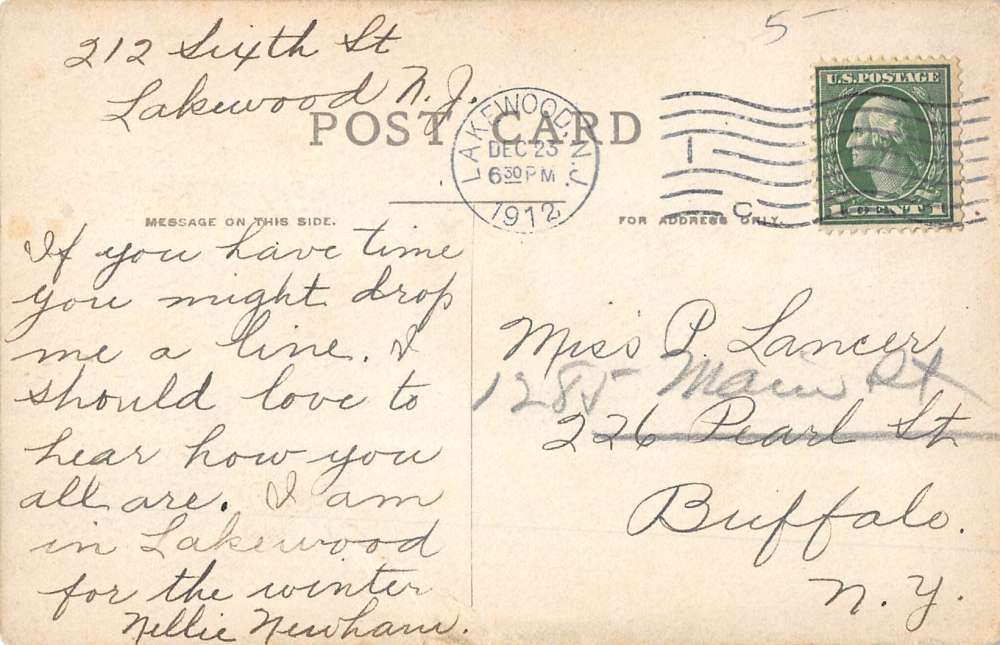 5
212 Sixth St
Lakewood N. J.
POST CARD
LAKEWOOD, N.J.
DEC 23
6 30 PM
1912
U.S. POSTAGE
MESSAGE ON THIS SIDE.
FOR ADDRESS ONLY.
If you have time
you might drop
me a line. I
should love to
hear how you
all are. I am
in Lakewood
for the winter
Nellie Newham.
Miss P. Lancer
1285 Main St
226 Pearl St
Buffalo.
N. Y.